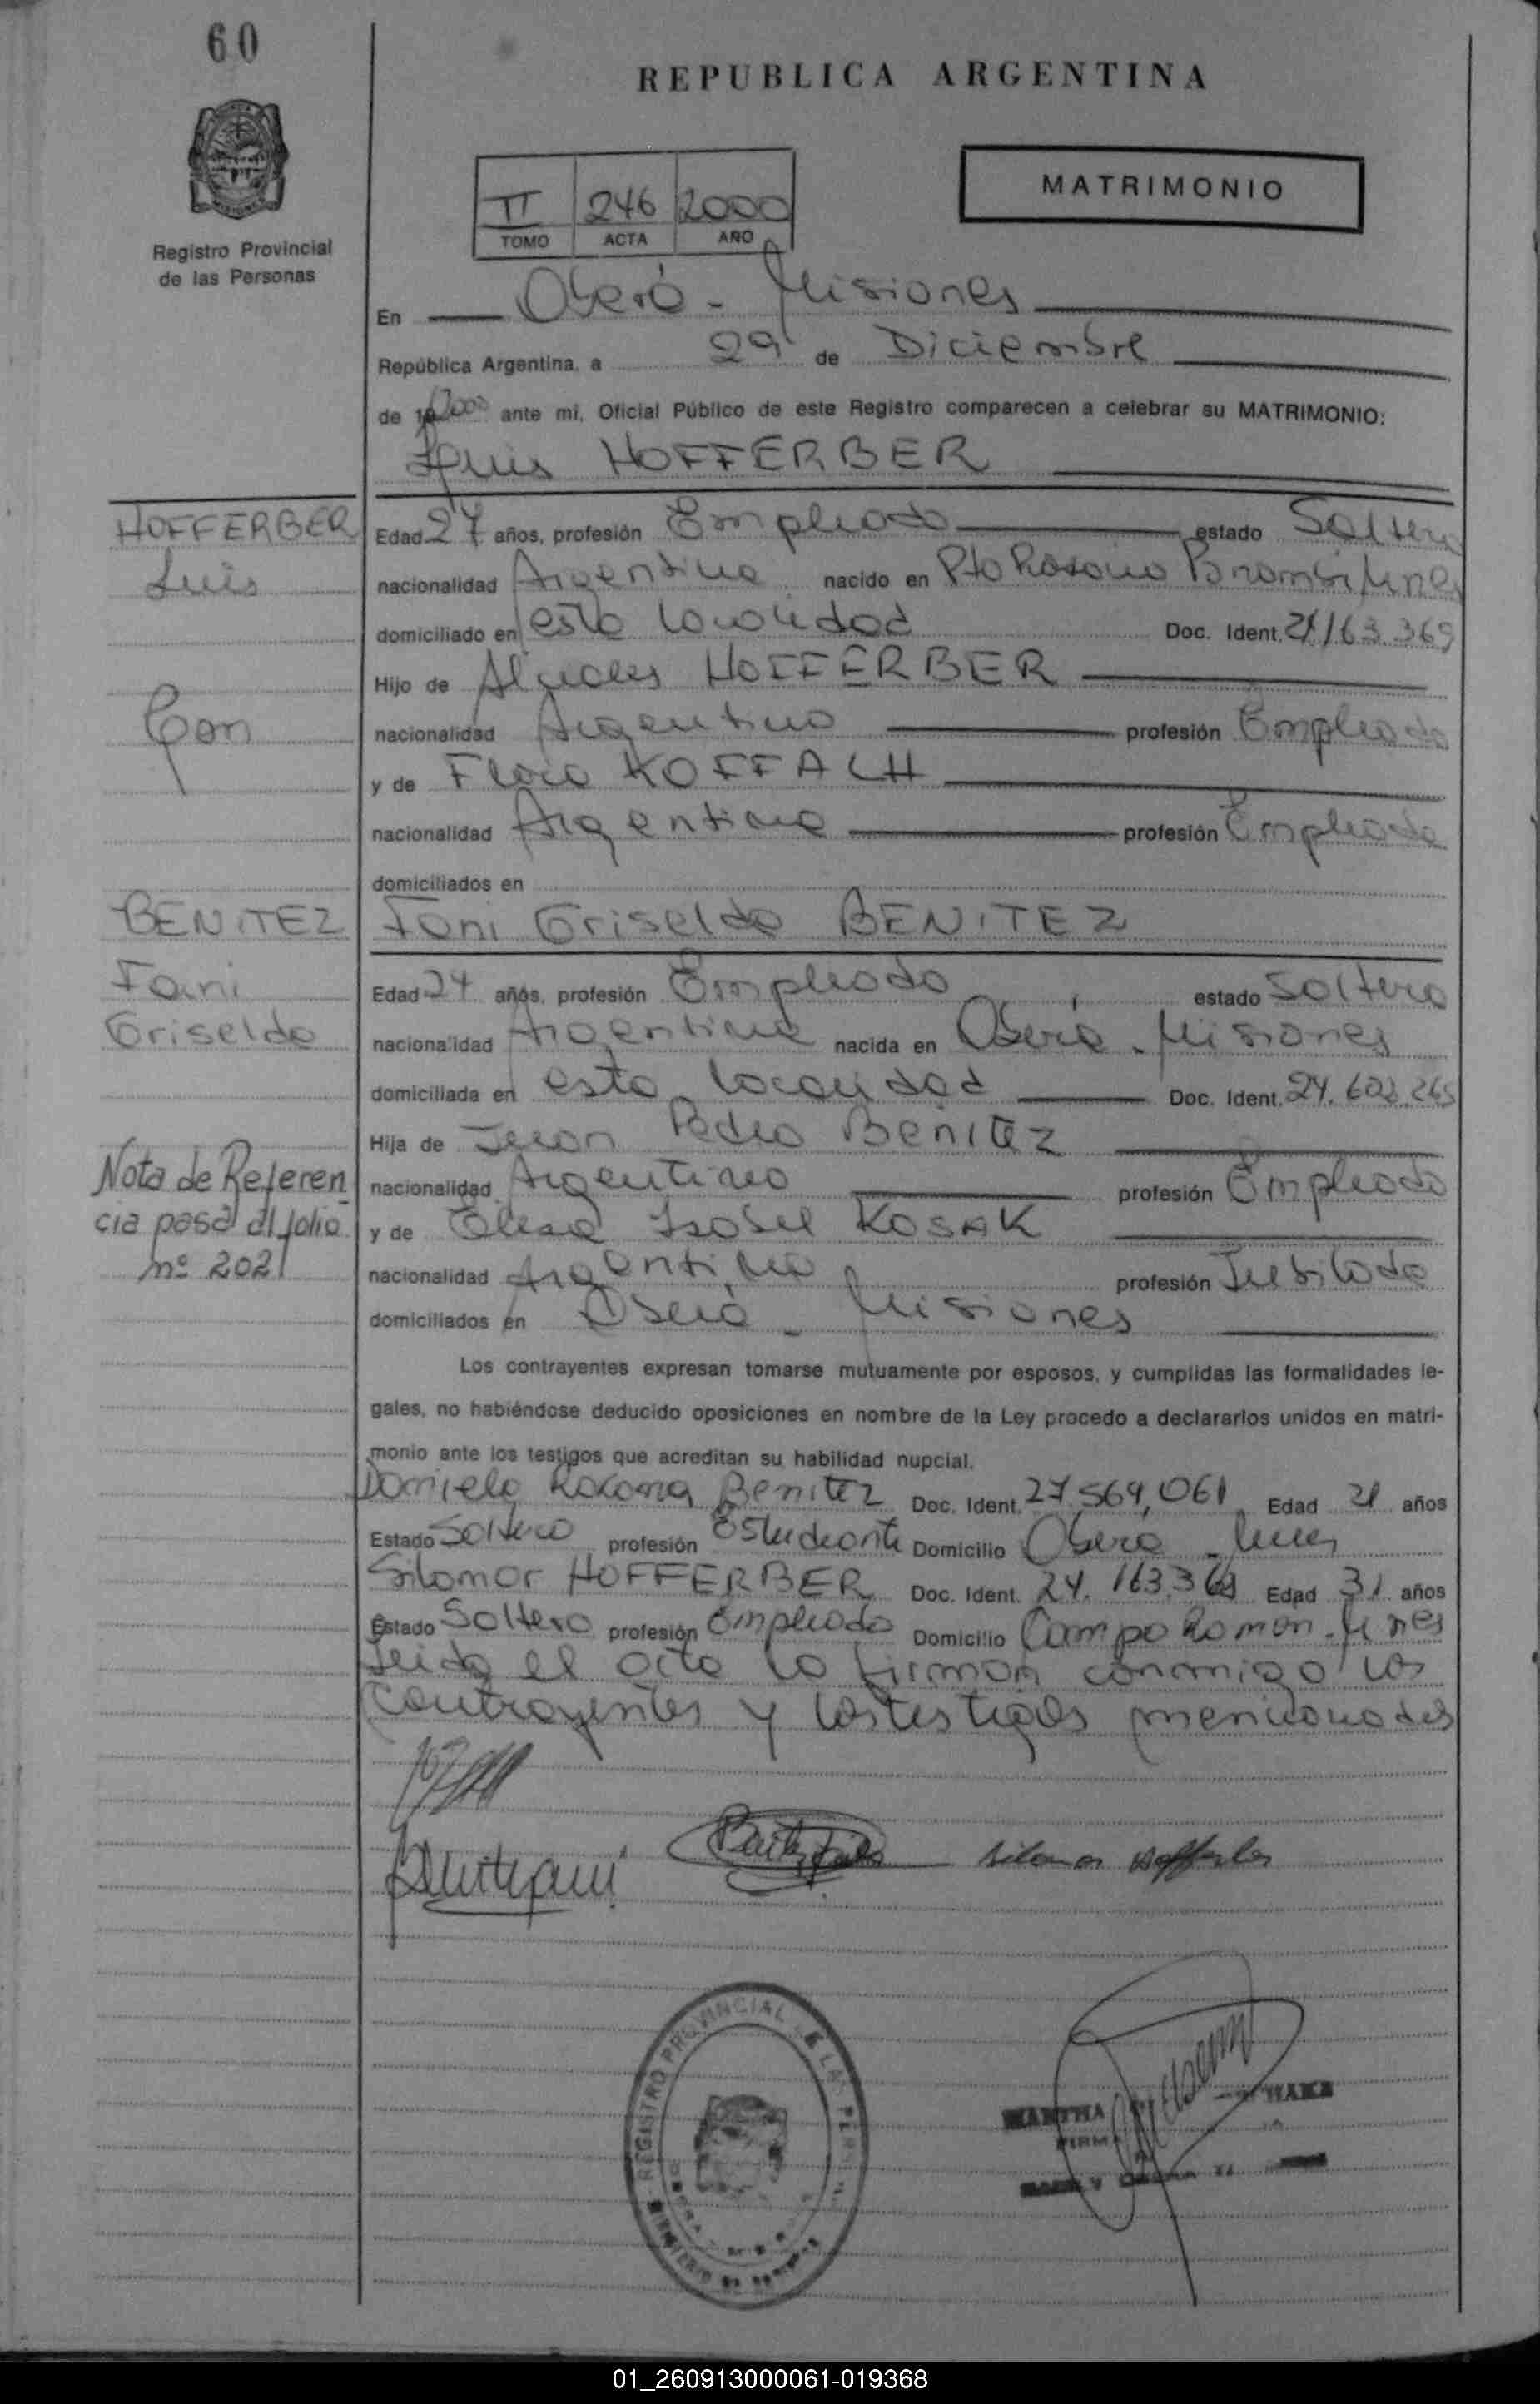 60
REPUBLICA ARGENTINA
II 246 2000
TOMO ACTA AÑO
MATRIMONIO
Registro Provincial
de las Personas
En Oberá - Misiones
República Argentina, a 29 de Diciembre
de 19 2000 ante mi, Oficial Público de este Registro comparecen a celebrar su MATRIMONIO:
Luis HOFFERBER
HOFFERBER
Luis
Con
BENITEZ
Fani
Griselda
Nota de Referen
cia pasa al folio
nº 202
Edad 27 años, profesión Empleado estado Soltero
nacionalidad Argentina nacido en Pto Rosario
domiciliado en esta localidad Doc. Ident. 163.369
Hijo de Alcides HOFFERBER
nacionalidad Argentino profesión Empleado
y de KOFFALH
nacionalidad Argentina profesión Empleada
domiciliados en
Fani Griselda BENITEZ
Edad 24 años, profesión Empleada estado Soltera
nacionalidad Argentina nacida en Oberá - Misiones
domiciliada en esta localidad Doc. Ident. 24.602.265
Hija de Juan Pedro Benitez
nacionalidad Argentino profesión Empleado
y de Elisa Isabel KOSAK
nacionalidad Argentina profesión Jubilada
domiciliados en Oberá - Misiones
Los contrayentes expresan tomarse mutuamente por esposos, y cumplidas las formalidades le-
gales, no habiéndose deducido oposiciones en nombre de la Ley procedo a declararlos unidos en matri-
monio ante los testigos que acreditan su habilidad nupcial.
Daniela Roxana Benitez Doc. Ident. 27.569,061 Edad 21 años
Estado Soltera profesión Estudiante Domicilio Oberá - Mnes
Silomar HOFFERBER Doc. Ident. 24.163.368 Edad 31 años
Estado Soltero profesión Empleado Domicilio Campo Ramon - Mnes
Leida el acta la firman conmigo los
contrayentes y los testigos mencionados
Silomar Hofferber
REGISTRO PROVINCIAL DE LAS
MARTHA
FIRMA
01_260913000061-019368